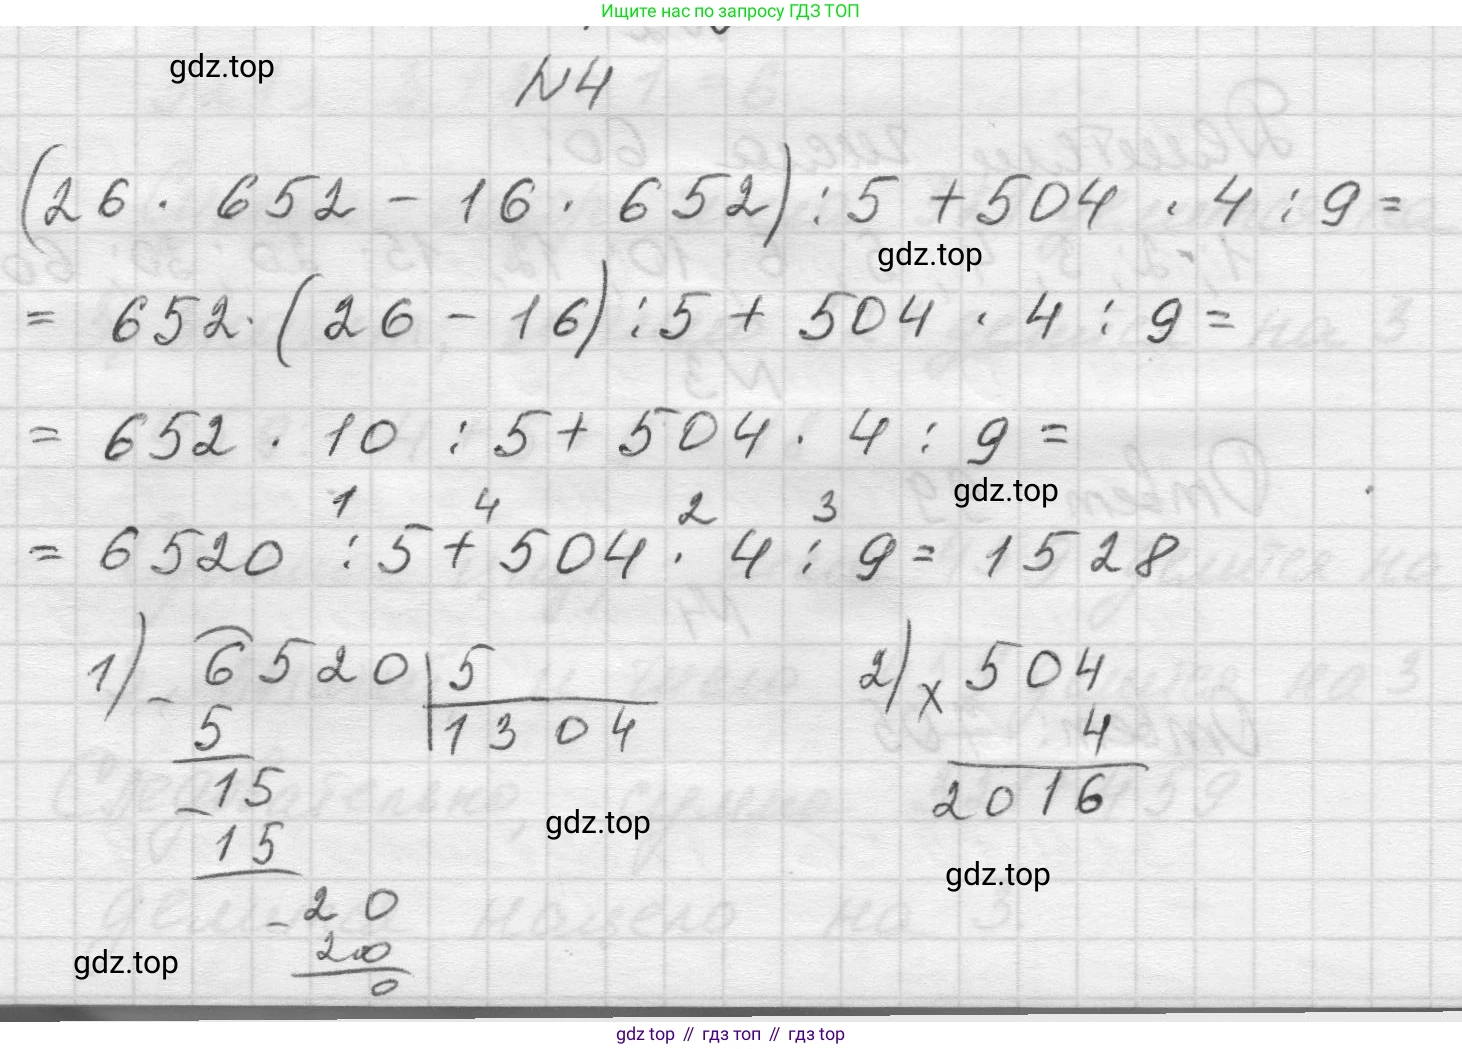 Ищите нас по запросу ГДЗ ТОП
gdz.top
N4
(26 · 652 - 16 · 652) : 5 + 504 · 4 : 9 =
gdz.top
= 652 · (26 - 16) : 5 + 504 · 4 : 9 =
= 652 · 10 : 5 + 504 · 4 : 9 =
gdz.top
1 4 2 3
= 6520 : 5 + 504 · 4 : 9 = 1528
1) - 6520 | 5
5 1304
- 15
15
- 20
20
0
2) x 504
4
2016
gdz.top
gdz.top
gdz.top
gdz top // гдз топ // гдз top